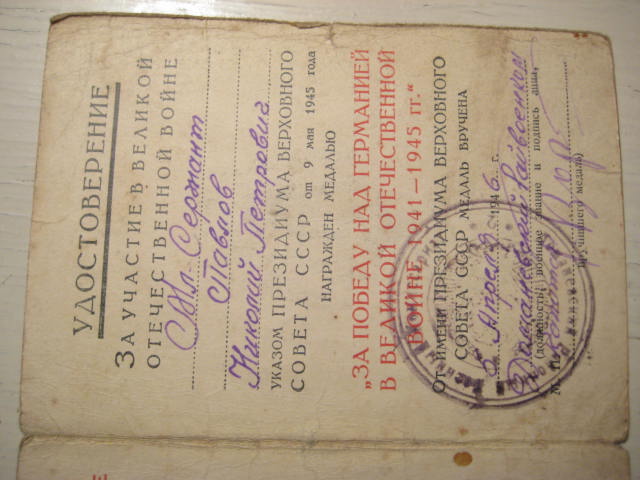 УДОСТОВЕРЕНИЕ
ЗА УЧАСТИЕ В ВЕЛИКОЙ
ОТЕЧЕСТВЕННОЙ ВОЙНЕ
Мл. Сержант
Павлов
Николай Петрович
УКАЗОМ ПРЕЗИДИУМА ВЕРХОВНОГО
СОВЕТА СССР от 9 мая 1945 года
НАГРАЖДЕН МЕДАЛЬЮ
„ЗА ПОБЕДУ НАД ГЕРМАНИЕЙ
В ВЕЛИКОЙ ОТЕЧЕСТВЕННОЙ
ВОЙНЕ 1941—1945 гг.“
ОТ ИМЕНИ ПРЕЗИДИУМА ВЕРХОВНОГО
СОВЕТА СССР МЕДАЛЬ ВРУЧЕНА
Апреля 1946 г.
Райвоенком
(должность, военное звание и подпись лица,
вручившего медаль)
М. П.